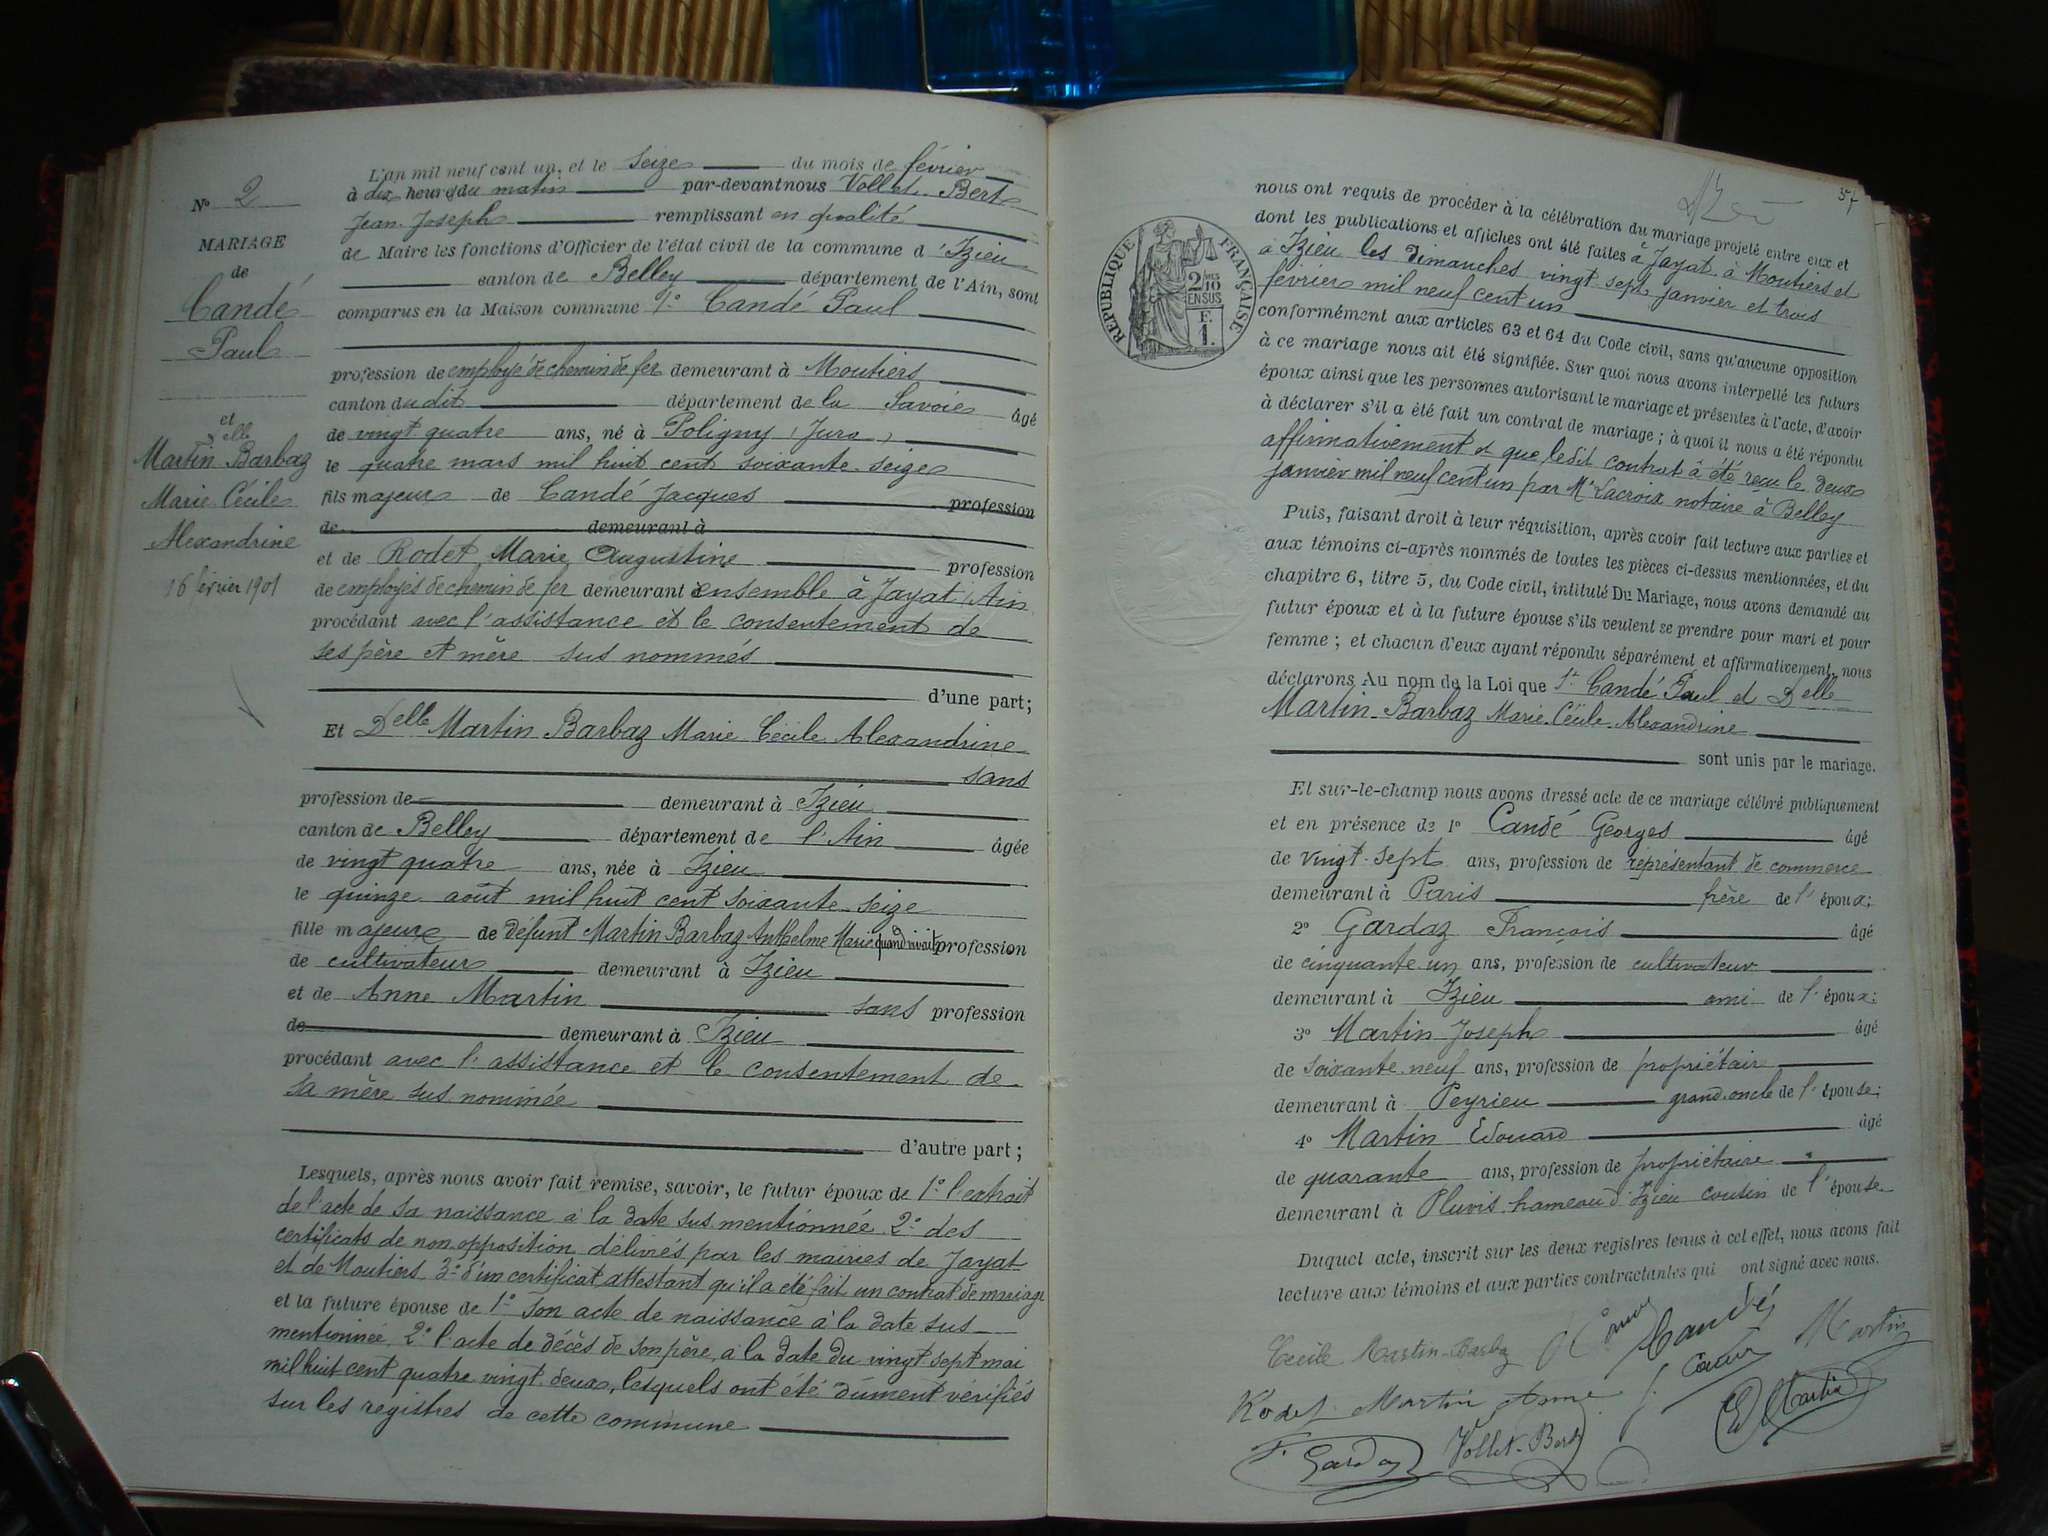 L'an mil neuf cent un, et le seize du mois de février
à dix heures du matin par-devant nous Vollet-Bert
Jean Joseph remplissant en qualité
de Maire les fonctions d'Officier de l'état civil de la commune d'Izieu
canton de Belley département de l'Ain, sont
comparus en la Maison commune 1º Candé Paul
profession de employé de chemin de fer demeurant à Moutiers
canton dudit département de la Savoie âgé
de vingt quatre ans, né à Poligny (Jura)
le quatre mars mil huit cent soixante-seize
fils majeur de Candé Jacques profession
de demeurant à
et de Rodet Marie Augustine profession
de employés de chemin de fer demeurant ensemble à Jayat (Ain
procédant avec l'assistance et le consentement de
ses père et mère sus nommés
d'une part;
Et Delle Martin Barbaz Marie Cécile Alexandrine
sans
profession de demeurant à Izieu
canton de Belley département de l'Ain âgée
de vingt quatre ans, née à Izieu
le quinze août mil huit cent soixante-seize
fille majeure de défunt Martin Barbaz Anthelme Marie quand vivait profession
de cultivateur demeurant à Izieu
et de Anne Martin sans profession
de demeurant à Izieu
procédant avec l'assistance et le consentement de
sa mère sus nommée
d'autre part;
Lesquels, après nous avoir fait remise, savoir, le futur époux de 1º l'extrait
de l'acte de sa naissance à la date sus mentionnée 2º des
certificats de non opposition délivrés par les mairies de Jayat
et de Moutiers 3º d'un certificat attestant qu'il a été fait un contrat de mariage
et la future épouse de 1º son acte de naissance à la date sus
mentionnée 2º l'acte de décès de son père, à la date du vingt sept mai
mil huit cent quatre vingt deux, lesquels ont été dûment vérifiés
sur les registres de cette commune
Nº 2
MARIAGE
de
Candé
Paul
et
elle
Martin Barbaz
Marie Cécile
Alexandrine
16 février 1901
57
RÉPUBLIQUE FRANÇAISE
2/10
EN SUS
F.
1.
nous ont requis de procéder à la célébration du mariage projeté entre eux et
dont les publications et affiches ont été faites à Jayat à Moutiers et
à Izieu les dimanches vingt sept janvier et trois
février mil neuf cent un
conformément aux articles 63 et 64 du Code civil, sans qu'aucune opposition
à ce mariage nous ait été signifiée. Sur quoi nous avons interpellé les futurs
époux ainsi que les personnes autorisant le mariage et présentes à l'acte, d'avoir
à déclarer s'il a été fait un contrat de mariage; à quoi il nous a été répondu
affirmativement et que ledit contrat à été reçu le deux
janvier mil neuf cent un par Me Lacroix notaire à Belley
Puis, faisant droit à leur réquisition, après avoir fait lecture aux parties et
aux témoins ci-après nommés de toutes les pièces ci-dessus mentionnées, et du
chapitre 6, titre 5, du Code civil, intitulé Du Mariage, nous avons demandé au
futur époux et à la future épouse s'ils veulent se prendre pour mari et pour
femme; et chacun d'eux ayant répondu séparément et affirmativement, nous
déclarons Au nom de la Loi que Candé Paul et Delle
Martin-Barbaz Marie Cécile Alexandrine
sont unis par le mariage.
Et sur-le-champ nous avons dressé acte de ce mariage célébré publiquement
et en présence de 1º Candé Georges âgé
de vingt-sept ans, profession de représentant de commerce
demeurant à Paris frère de l'époux;
2º Gardaz François âgé
de cinquante un ans, profession de cultivateur
demeurant à Izieu ami de l'époux;
3º Martin Joseph âgé
de soixante neuf ans, profession de propriétaire
demeurant à Peyrieu grand-oncle de l'épouse;
4º Martin Edouard âgé
de quarante ans, profession de propriétaire
demeurant à Pluvis hameau d'Izieu cousin de l'épouse
Duquel acte, inscrit sur les deux registres tenus à cet effet, nous avons fait
lecture aux témoins et aux parties contractantes qui ont signé avec nous.
Cécile Martin-Barbaz Candé Martin
Rodet Martin Anne Ed Martin
F. Gardaz Vollet-Bert